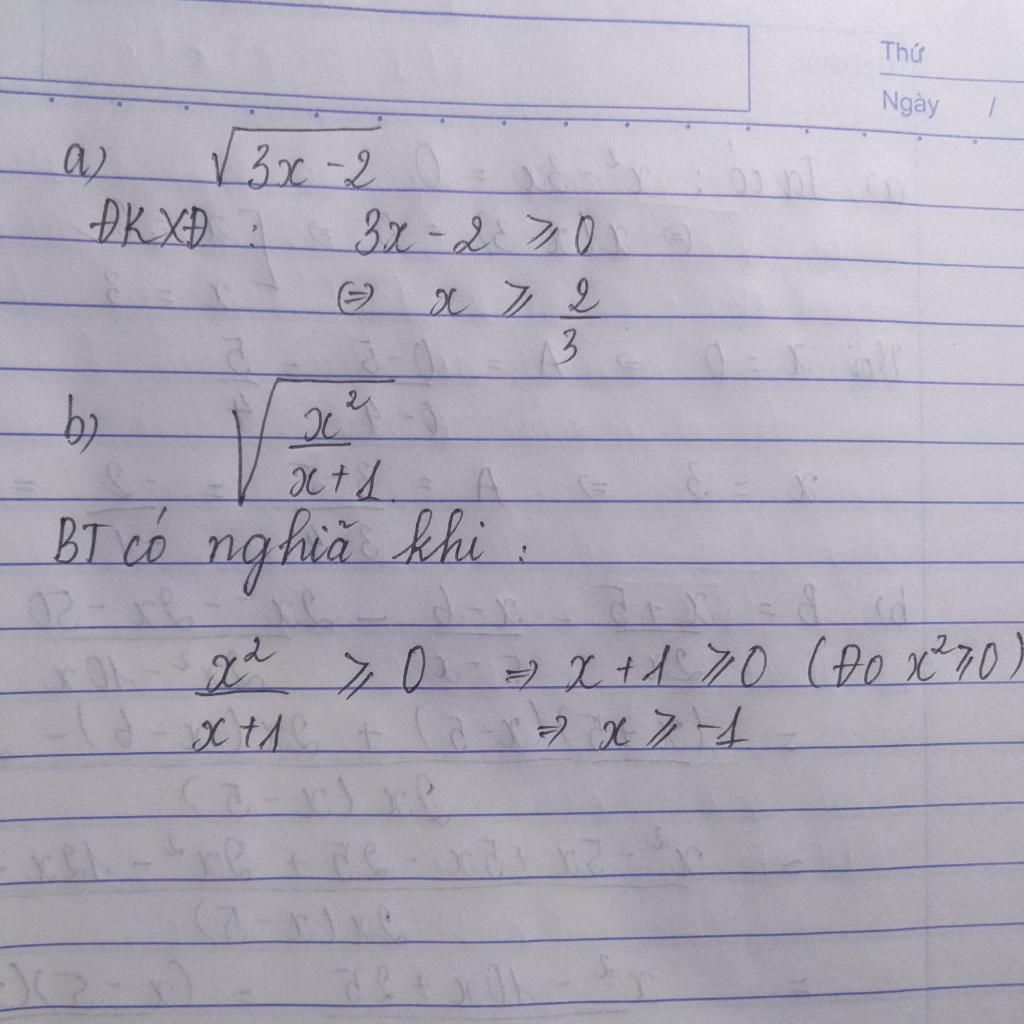 Thứ
Ngày /
a) √(3x - 2)
ĐKXĐ : 3x - 2 ⩾ 0
⇔ x ⩾ 2/3
b) √(x²/(x+1))
BT có nghiã khi :
x²/(x+1) ⩾ 0 ⇒ x + 1 ⩾ 0 (Do x² ⩾ 0)
⇒ x ⩾ -1